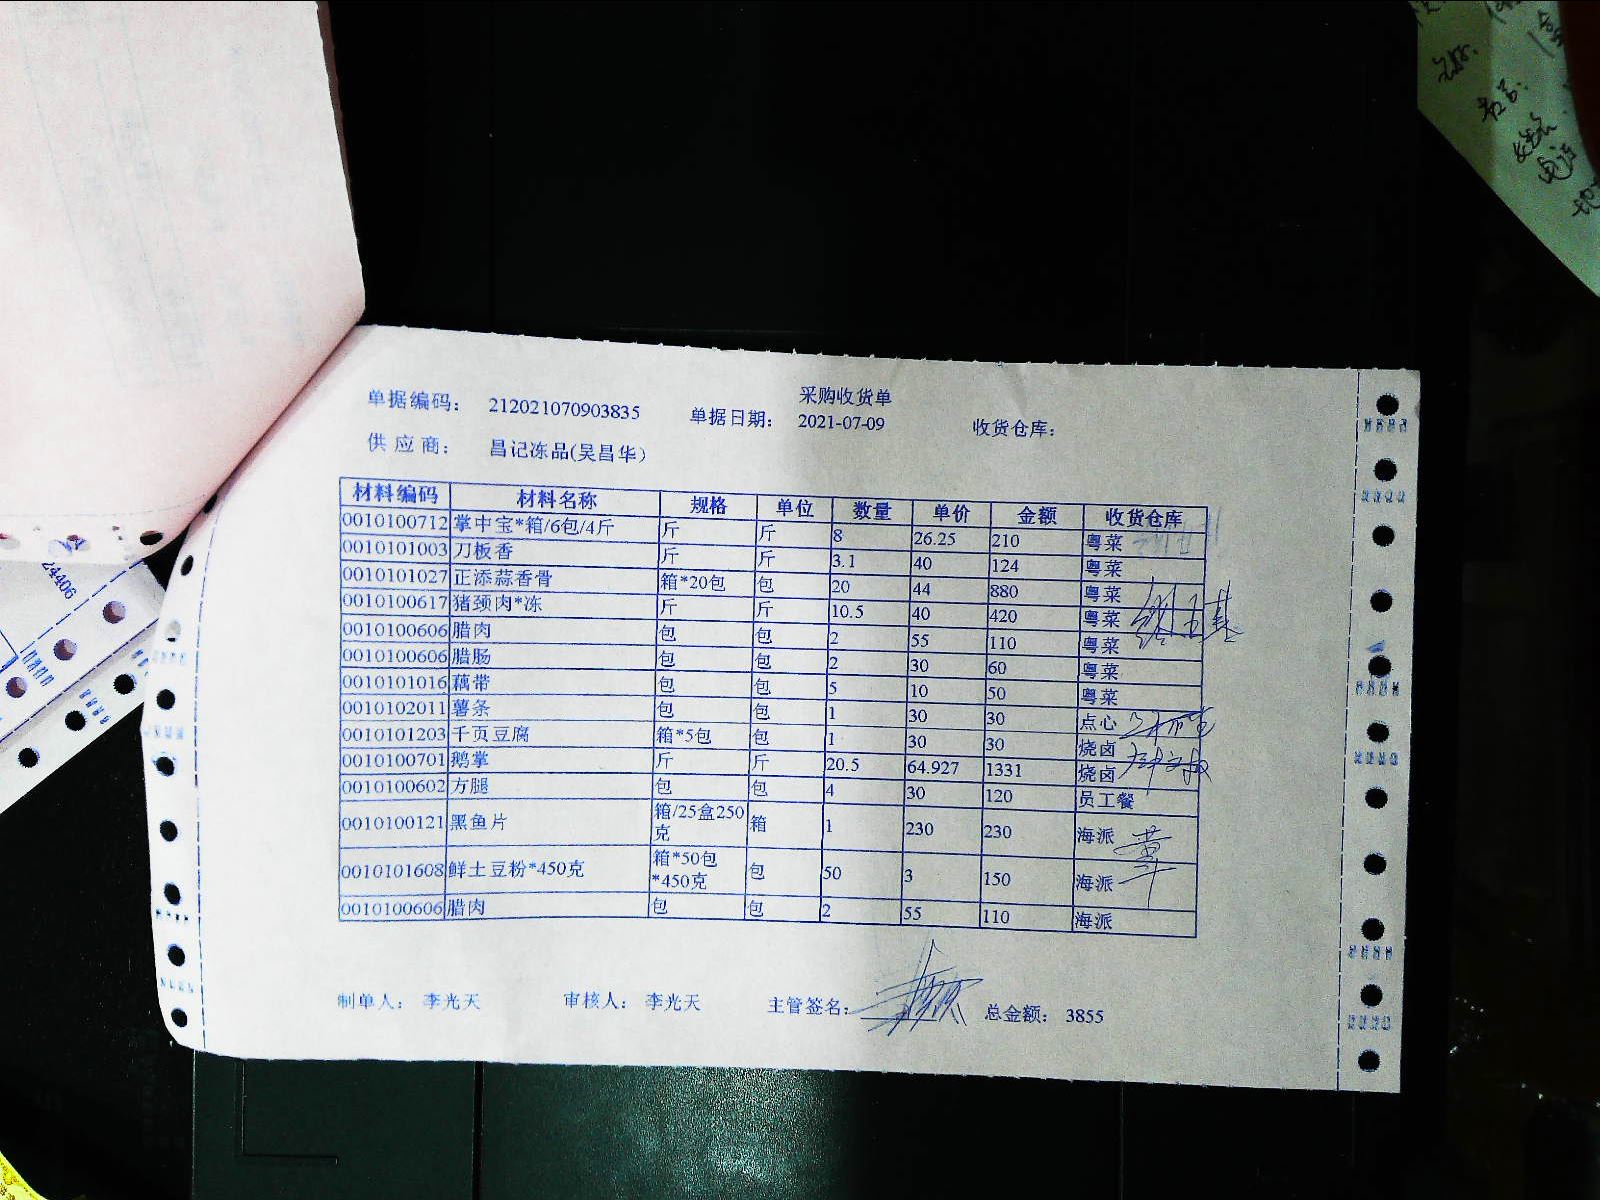 采购收货单
单据编码： 212021070903835 单据日期： 2021-07-09 收货仓库：
供 应 商： 昌记冻品(吴昌华)
材料编码 材料名称 规格 单位 数量 单价 金额 收货仓库
0010100712 掌中宝*箱/6包/4斤 斤 斤 8 26.25 210 粤菜
0010101003 刀板香 斤 斤 3.1 40 124 粤菜
0010101027 正添蒜香骨 箱*20包 包 20 44 880 粤菜
0010100617 猪颈肉*冻 斤 斤 10.5 40 420 粤菜
0010100606 腊肉 包 包 2 55 110 粤菜
0010100606 腊肠 包 包 2 30 60 粤菜
0010101016 藕带 包 包 5 10 50 粤菜
0010102011 薯条 包 包 1 30 30 点心
0010101203 千页豆腐 箱*5包 包 1 30 30 烧卤
0010100701 鹅掌 斤 斤 20.5 64.927 1331 烧卤
0010100602 方腿 包 包 4 30 120 员工餐
0010100121 黑鱼片 箱/25盒250克 箱 1 230 230 海派
0010101608 鲜土豆粉*450克 箱*50包*450克 包 50 3 150 海派
0010100606 腊肉 包 包 2 55 110 海派
制单人： 李光天 审核人： 李光天 主管签名： 总金额： 3855
24406
电话